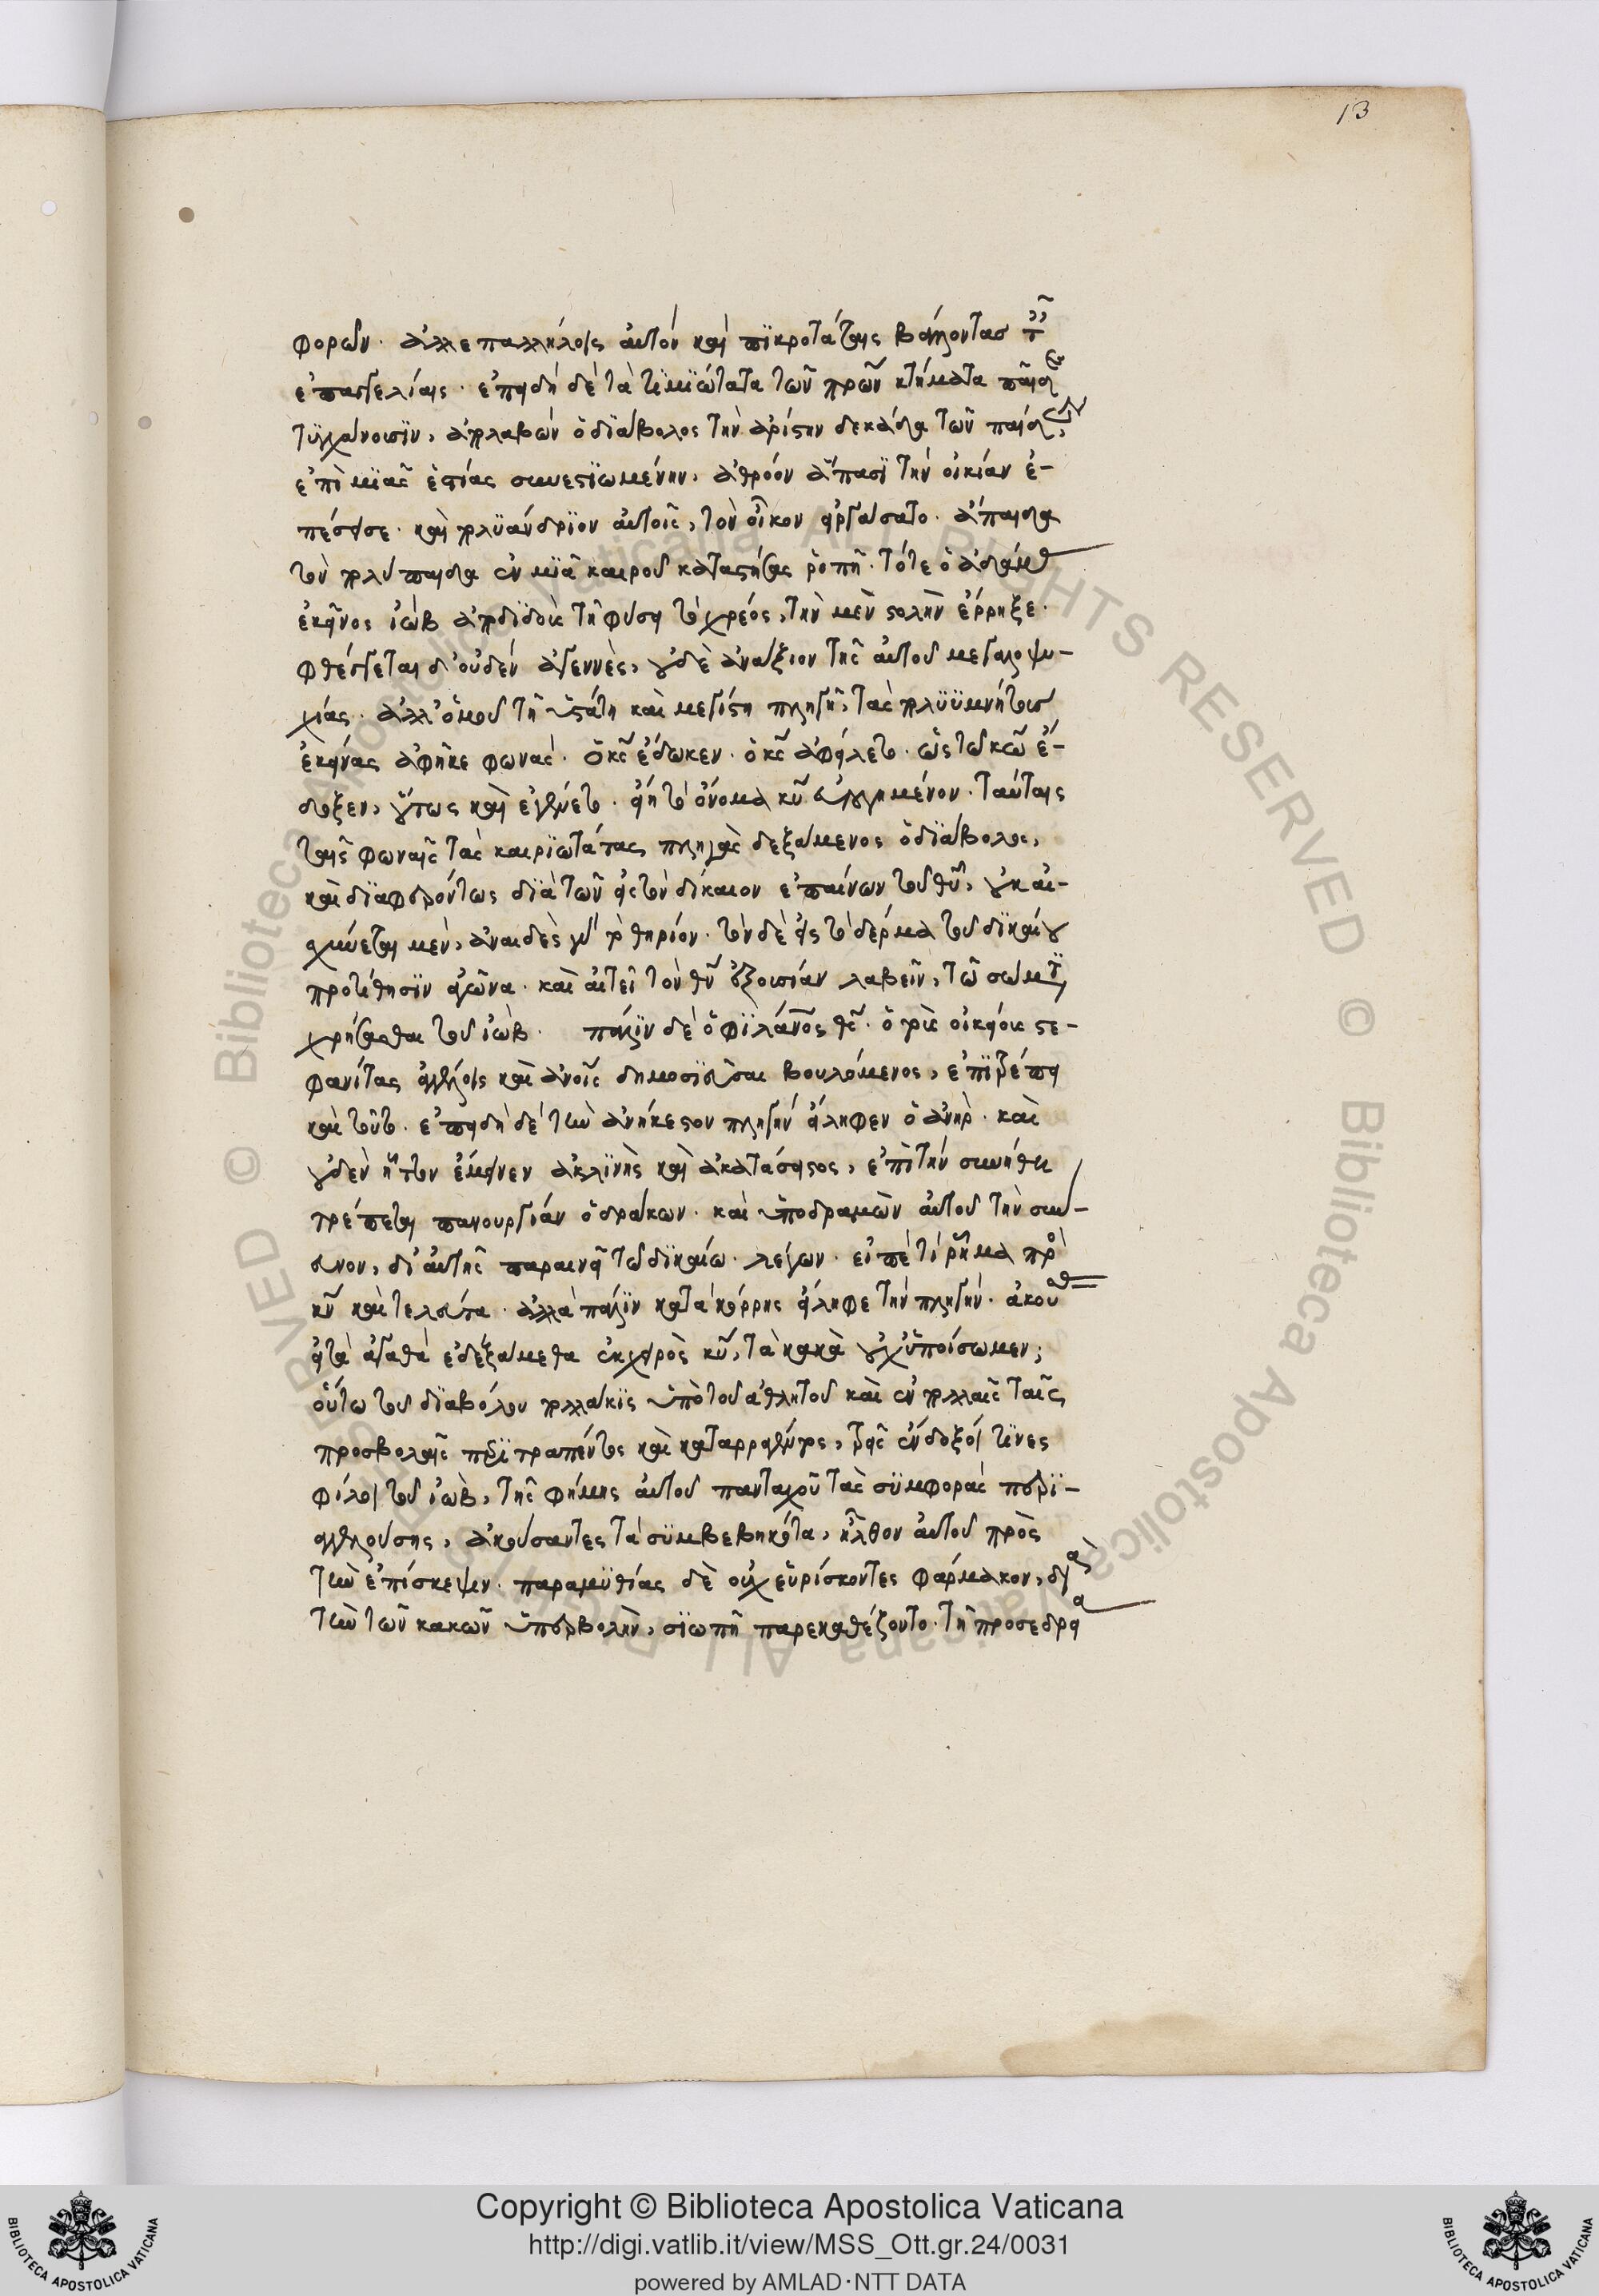 13
φορῶν. ἀλλεπαλλήλοις αὐτὸν καὶ πϊκροτάταις βάλλοντας
ἐπαγγελίαις. ἐπειδὴ δὲ τὰ τϊμϊώτατα τῶν πρῶν κτήματα παῖδες
τϋγχάνουσϊν, ἀπολαβὼν ὁ δϊάβολος τὴν ἀρίστην δεκάδα τῶν παίδων,
ἐπὶ μϊᾶς ἑστίας συνεστϊωμένην, ἀθρόον ἅπασϊ τὴν οἰκίαν ἐ-
πέσεισε. καὶ πολϋάνδρϊον αὐτοῖς, τὸν οἶκον εἰργάσατο. ἄπαιδα
τὸν πολύπαιδα ἐν μϊᾷ καιροῦ καταστήσας ῥοπῇ. τότε ὁ ἀδάμας
ἐκεῖνος ἰὼβ ἀποδϊδοὺς τῇ φύσει τὸ χρέος, τὴν μὲν στολὴν ἔρρηξε.
φθέγγεται δ' οὐδὲν ἀγεννὲς, οὐδὲ ἀνάξιον τῆς αὐτοῦ μεγαλοψυ-
χίας. ἀλλ' ὁμοῦ τῇ ὑστάτῃ καὶ μεγίστῃ πληγῇ, τὰς πολϋϋμνήτους
ἐκείνας ἀφῆκε φωνάς. ὁ κς ἔδωκεν. ὁ κς ἀφείλετο. ὡς τῷ κω ἔ-
δοξεν, οὕτως καὶ ἐγένετο. εἴη τὸ ὄνομα κυ εὐλογημένον. ταύταις
ταῖς φωναῖς τὰς καιρϊωτάτας πληγὰς δεξάμενος ὁ δϊάβολος,
καὶ δϊαφθονούντως διὰ τῶν εἰς τὸν δίκαιον ἐπαίνων τοῦ θυ, οὐκ αἰ-
σχύνεται μὲν, ἀναιδὲς γὰρ τὸ θηρίον. τὸν δὲ εἰς τὸ δέρμα τοῦ δϊκαίου
προτίθησϊν ἀγῶνα. καὶ αἰτεῖ τὸν θν ἐξουσίαν λαβεῖν, τῷ σώματϊ
χρήσασθαι τοῦ ἰώβ. πάλϊν δὲ ὁ φϊλανος θς. ὁ τοὺς οἰκείους στε-
φανίτας ἀγγέλοις καὶ ανοις δημοσϊεῦσαι βουλόμενος, ἐπϊτρέπει
καὶ τοῦτο. ἐπειδὴ δὲ τὴν ἀνήκεστον πληγὴν εἴληφεν ὁ ἀνὴρ. καὶ
οὐδὲν ἧττον ἔμεινεν ἀκλϊνὴς καὶ ἀκατάσειστος, ἐπὶ τὴν συνήθη
τρέπεται πανουργίαν ὁ δράκων. καὶ ὑποδραμὼν αὐτοῦ τὴν σύ-
ευνον, δι' αὐτῆς παραινεῖ τῷ δϊκαίω. λέγων. εἰπέ τι ῥῆμα πρὸς
κν καὶ τελεύτα. ἀλλὰ πάλϊν κατὰ κόρρης εἴληφε τὴν πληγήν. ἀκούσας
εἰ τὰ ἀγαθὰ ἐδεξάμεθα ἐκ χειρὸς κυ, τὰ κακὰ οὐχ ὑποίσωμεν;
οὕτω τοῦ δϊαβόλου πολλάκϊς ὑπὸ τοῦ ἀθλητοῦ καὶ ἐν πολλαῖς ταῖς
προσβολαῖς περϊτραπέντος καὶ καταρραγέντος, τρεῖς ἔνδοξοι τϊνες
φίλοι τοῦ ἰὼβ, τῆς φήμης αὐτοῦ πανταχοῦ τὰς σϋμφορὰς περϊ-
αγγελούσης, ἀκούσαντες τὰ σϋμβεβηκότα, ἦλθον αὐτοῦ πρὸς
τὴν ἐπίσκεψιν. παραμϋθίας δὲ οὐχ εὑρίσκοντες φάρμακον, διὰ
τὴν τῶν κακῶν ὑπερβολὴν, σϊωπῇ παρεκαθέζοντο. τῇ προσεδρεία
© Biblioteca Apostolica Vaticana ALL RIGHTS RESERVED © Biblioteca Apostolica Vaticana ALL RIGHTS RESERVED
BIBLIOTECA APOSTOLICA VATICANA
Copyright © Biblioteca Apostolica Vaticana
http://digi.vatlib.it/view/MSS_Ott.gr.24/0031
powered by AMLAD·NTT DATA
BIBLIOTECA APOSTOLICA VATICANA